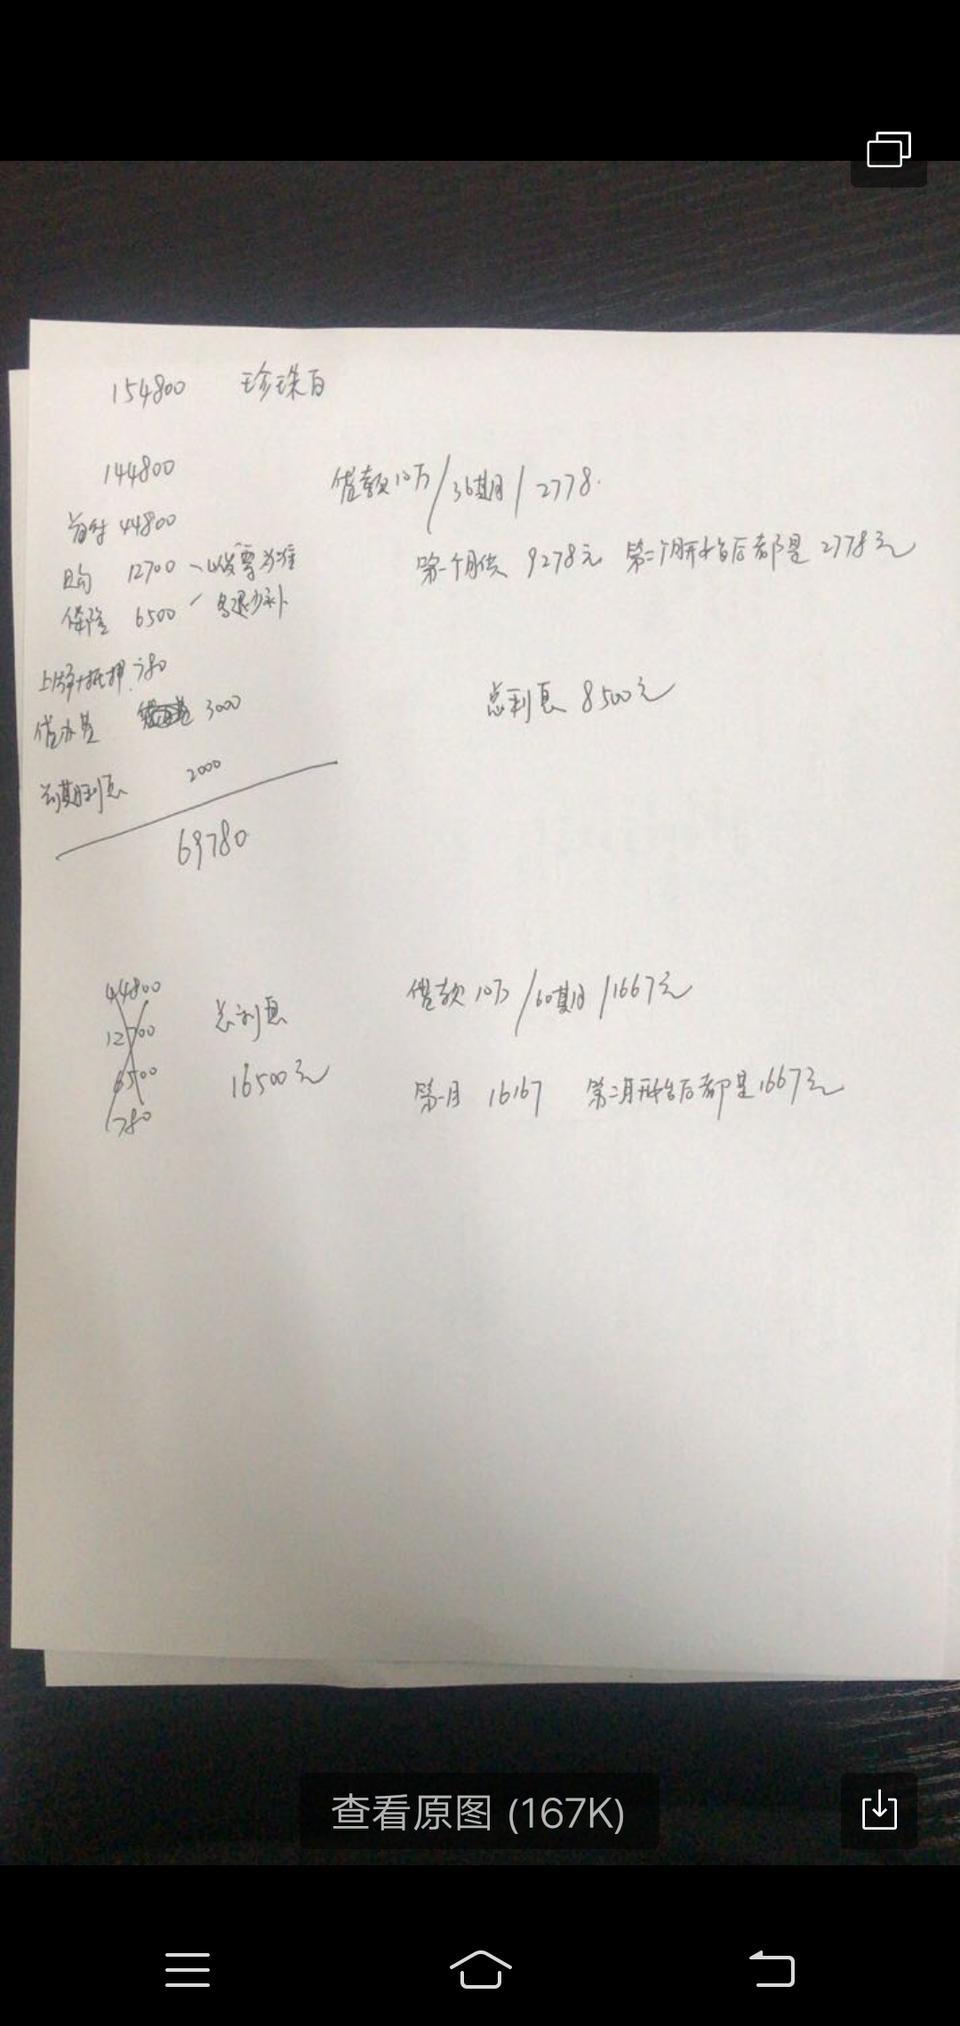 154800 珍珠白
144800
贷款10万/36期/2778.
首付 44800
购 12700 以发票为准
第一个月供 9278元 第二个月开始后都是2778元
保险 6500 多退少补
上牌+抵押 780
3000
总利息 8500元
利息 2000
69780
44800
12700
6500
780
总利息
16500元
贷款10万/60期/1667元
第一月 16167 第二月开始后都是1667元
查看原图 (167K)